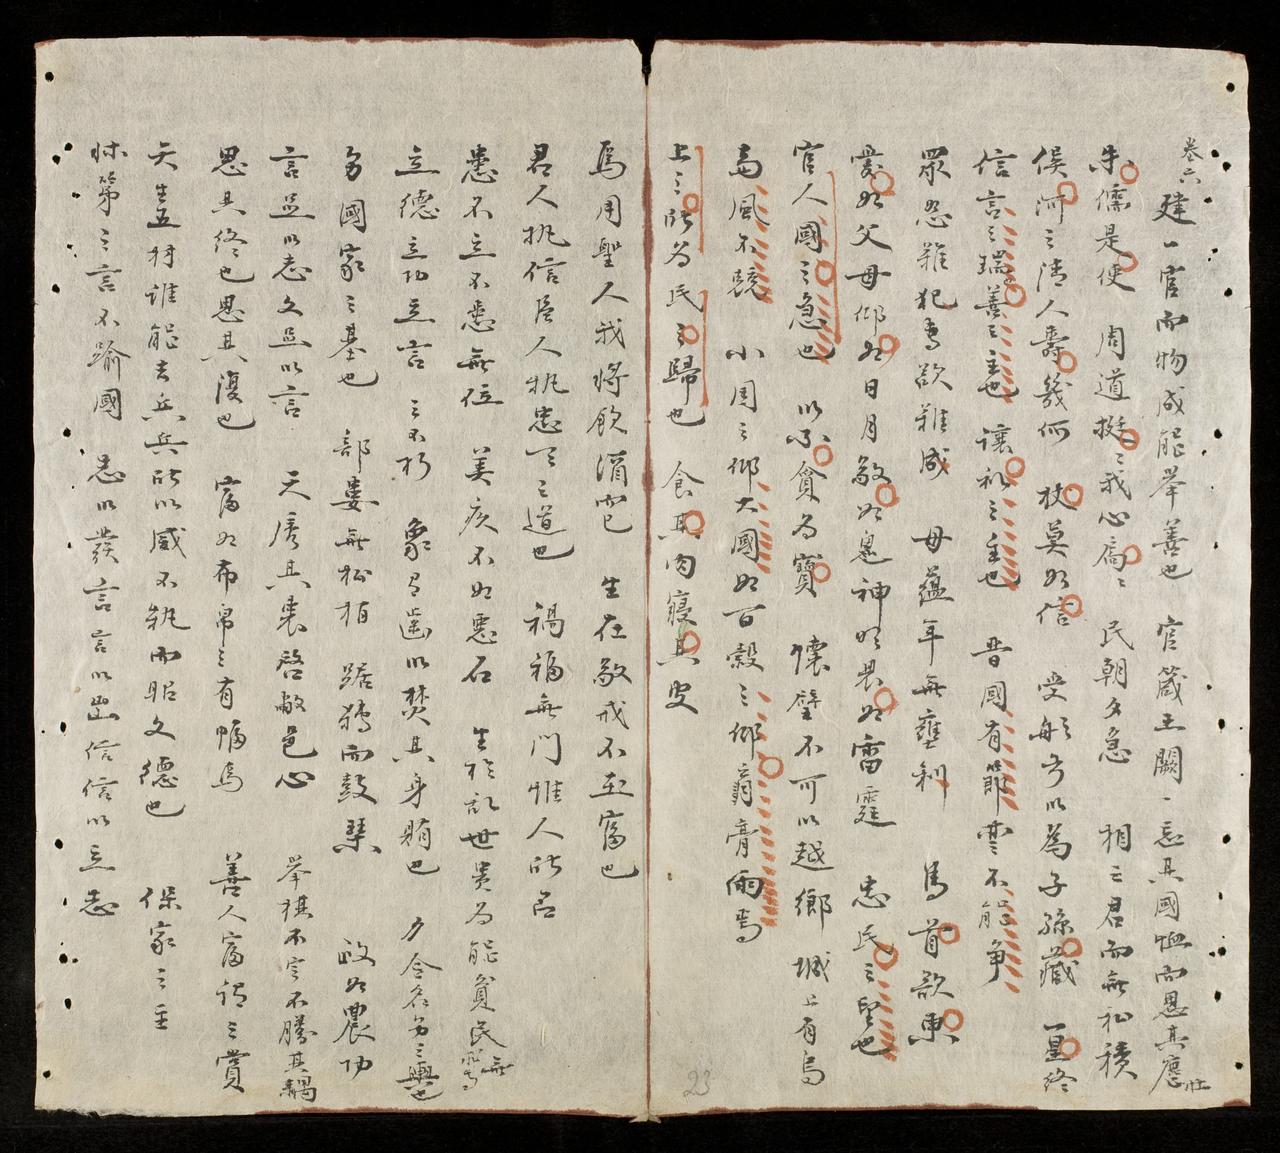 卷六
建一官而物成能舉善也 官箴王闕 忘其國恤而思其麀牡
朱儒是使 周道挺挺我心扃扃 民朝夕急 相三君而無私積
俟河之清人壽幾何 杖莫如信 受 以為子孫藏 一星終
信言之瑞善之主也 讓礼之主也 晋國有 不能争
眾怒難犯專欲難成 毋蘊年無壅利 馬首欲東
愛如父母仰如日月敬如鬼神畏如雷霆 忠民之望也
官人國之急也 以不貪為寶 懷璧不可以越鄉 城上有烏
南風不競 小國之仰大國如百穀之仰膏雨焉
上之所為民之歸也 食其肉寢其皮
焉用聖人我將飲酒而已 生在敬戒不在富也
君人執信臣人執忠天之道也 禍福無門惟人所召
患不立不患無位 美疢不如惡石 生於乱世貴為能貧民無
立德立功立言三不朽 象有齒以焚其身賄也 夕令名
國家之基也 部婁無松柏 踞轉而鼓琴 政如農功
言足以志文足以言 天誘其衷啓敝邑心 舉棋不定不勝其耦
思其終也思其復也 富如布帛之有幅焉 善人富謂之賞
天生五材誰能去兵兵所以威不軌而昭文德也 保家之主
牀第之言不踰國 志以發言言以出信信以立志
23